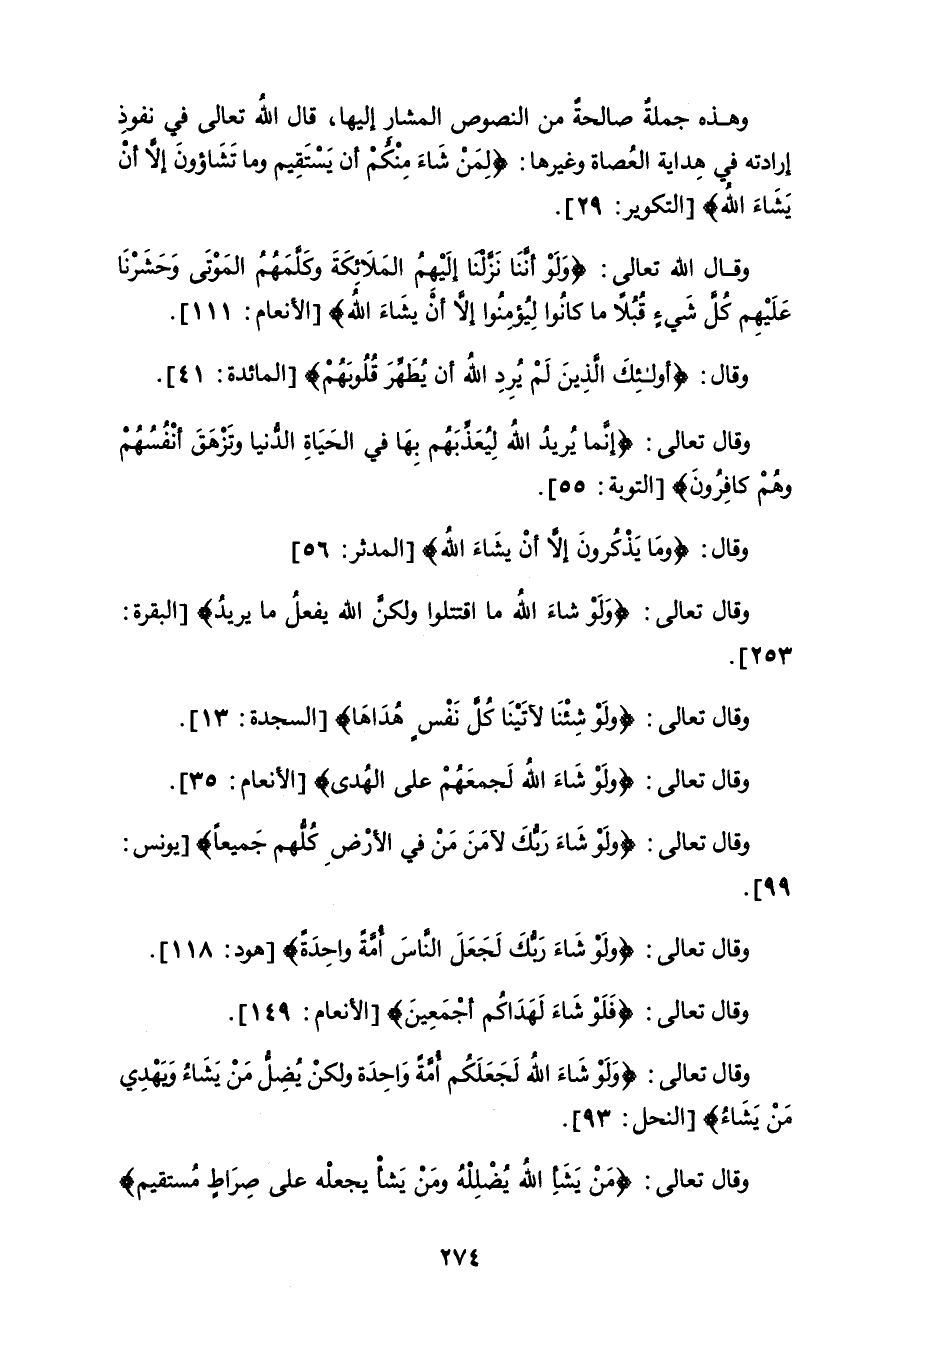 وهـذه جملةٌ صالحةٌ من النصوص المشارِ إليها، قال اللهُ تعالى في نفوذِ
إرادته في هِداية العُصاة وغيرها: ﴿لِمَنْ شَاءَ مِنْكُمْ أن يَسْتَقِيم وما تَشَاؤونَ إلَّا أنْ
يَشَاءَ اللهُ﴾ [التكوير: ٢٩].
وقـال الله تعالى: ﴿وَلَوْ أنَّنَا نَزَّلْنَا إلَيْهِمُ المَلَائِكَةَ وكَلَّمَهُمُ المَوْتَى وَحَشَرْنَا
عَلَيْهِم كُلَّ شَيءٍ قُبُلًا ما كانُوا لِيُؤمِنُوا إلَّا أنْ يشَاءَ اللهُ﴾ [الأنعام: ١١١].
وقال: ﴿أولـٰئِكَ الَّذِينَ لَمْ يُرِدِ اللهُ أن يُطَهِّرَ قُلُوبَهُمْ﴾ [المائدة: ٤١].
وقال تعالى: ﴿إنَّما يُريدُ اللهُ لِيُعَذِّبَهُم بِهَا في الحَيَاةِ الدُّنيا وتَزْهَقَ أنْفُسُهُمْ
وهُمْ كافِرُونَ﴾ [التوبة: ٥٥].
وقال: ﴿ومَا يَذْكُرونَ إلَّا أنْ يشَاءَ اللهُ﴾ [المدثر: ٥٦]
وقال تعالى: ﴿وَلَوْ شاءَ اللهُ ما اقتتلوا ولكنَّ الله يفعلُ ما يريدُ﴾ [البقرة:
٢٥٣].
وقال تعالى: ﴿ولَوْ شِئْنَا لآتَيْنَا كُلَّ نَفْسٍ هُدَاهَا﴾ [السجدة: ١٣].
وقال تعالى: ﴿ولَوْ شَاءَ اللهُ لَجمعَهُمْ على الهُدى﴾ [الأنعام: ٣٥].
وقال تعالى: ﴿ولَوْ شَاءَ رَبُّكَ لآمَنَ مَنْ في الأرْضِ كُلُّهم جَميعاً﴾ [يونس:
٩٩].
وقال تعالى: ﴿ولَوْ شَاءَ رَبُّكَ لَجَعَلَ النَّاسَ أُمَّةً واحِدَةً﴾ [هود: ١١٨].
وقال تعالى: ﴿فَلَوْ شَاءَ لَهَدَاكُم أجْمَعِينَ﴾ [الأنعام: ١٤٩].
وقال تعالى: ﴿وَلَوْ شَاءَ اللهُ لَجَعَلَكُم أُمَّةً وَاحِدَة ولكنْ يُضِلُّ مَنْ يَشَاءُ وَيَهْدِي
مَنْ يَشَاءُ﴾ [النحل: ٩٣].
وقال تعالى: ﴿مَنْ يَشَأِ اللهُ يُضْلِلْهُ ومَنْ يَشأْ يجعلْه على صِرَاطٍ مُستقيم﴾
٢٧٤